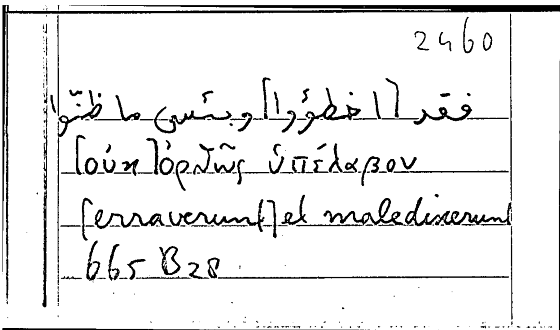 2460
فقد [اخطؤوا] وبئس ما ظنّوا
[οὐκ] ὀρθῶς ὑπέλαβον
[erraverunt] et maledixerunt
665 B 28